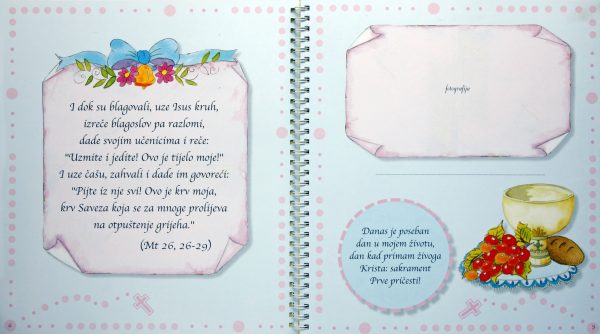 I dok su blagovali, uze Isus kruh,
izreče blagoslov pa razlomi,
dade svojim učenicima i reče:
"Uzmite i jedite! Ovo je tijelo moje!"
I uze čašu, zahvali i dade im govoreći:
"Pijte iz nje svi! Ovo je krv moja,
krv Saveza koja se za mnoge prolijeva
na otpuštenje grijeha."
(Mt 26, 26-29)
4
fotografije
Danas je poseban
dan u mojem životu,
dan kad primam živoga
Krista: sakrament
Prve pričesti!
5